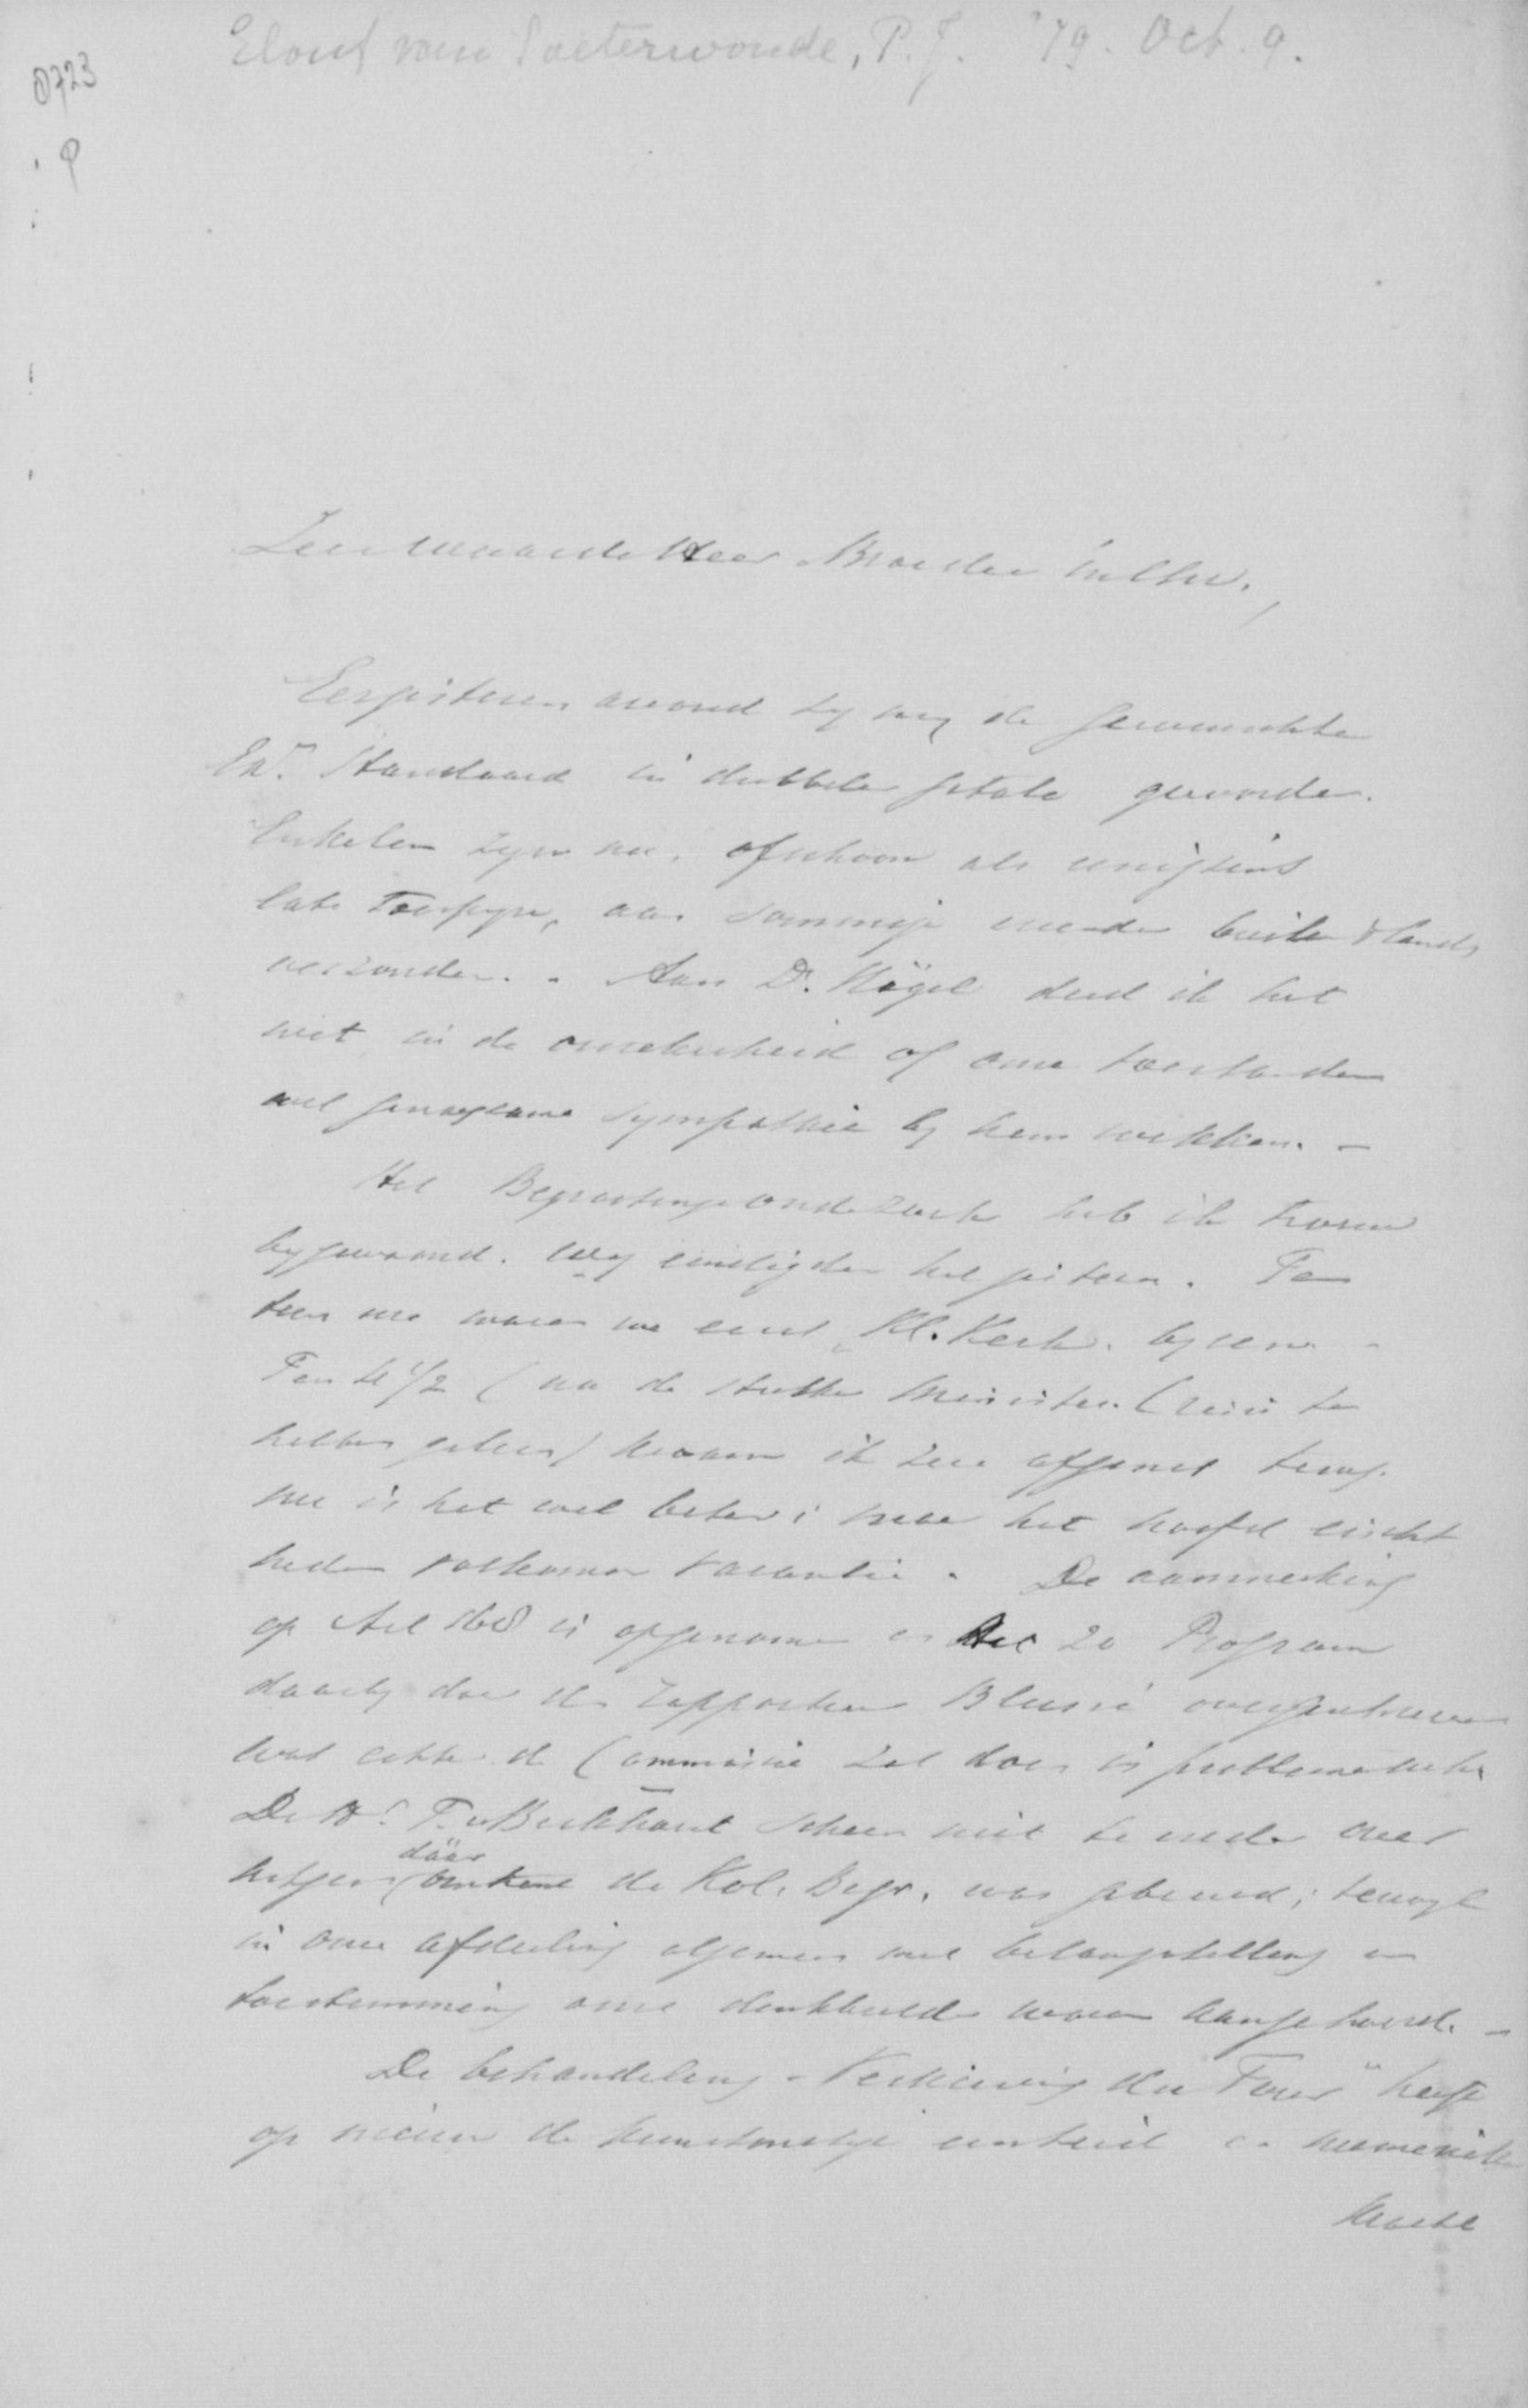 Elout van Soeterwoude, P.J. '79. Oct. 9.
0723
9
Zeer waarde Heer Broeder in Chr.,
Eergisteren avond zag mij de gewenschte
Ex. Standaard in dubbelen getale geworden.
Enkelen zijn nu, ofschoon als eenigzins
late aan sommige vrienden buiten 's lands
verzonden. - Aan Dr. Kögel deed ik het
niet in de onzekerheid of onze toestanden
wel genoegzame sympathie bij hem wekken. -
Het Begrootingsonderzoek heb ik trouw
bijgewoond. Wij eindigden het gisteren. Ten
tien ure waren we eerst Kl. Kerk. bijeen -
Ten 4 1/2 (na de stukken Minister. Crisis te
hebben gelezen) kwam ik zeer afgemat terug.
nu is het wel beter; maar het hoofd eischt
heden volkomen vacantie. De aanmerking
op Art 168 is opgenomen en Art 20 Program
daarbij door den rapporteur Blussé overgenomen
wat echter de Commissie zal doen is problematiek
De Hr. T. v Berkhout scheen niet te vreden over
hetgeen daar omtrent de Kol. Begr. was gebeurd; terwijl
in onze afdeeling algemeen met belangstelling en
toestemming onze denkbeelden waren aangehoord. -
De behandeling "Verkiezing der Tour" heeft
op nieuw de kunstmatige eenheid en numerieke
kracht